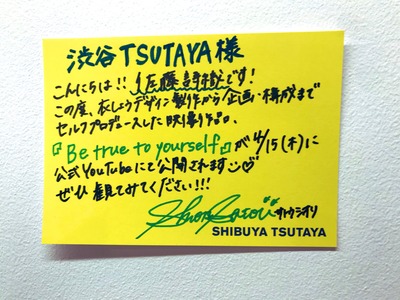 渋谷TSUTAYA様
こんにちは!! 佐藤詩織です!
この度、衣しょうデザイン製作から企画・構成まで
セルフプロデュースした映像作品。
『Be true to yourself』が4/15(木)に
公式YouTubeにて公開されます
ぜひ観てみてください!!!
Shiori Satou サトウシオリ
SHIBUYA TSUTAYA